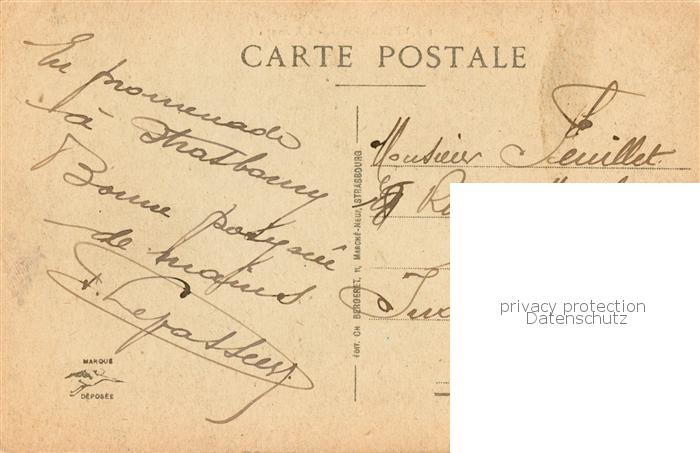 CARTE POSTALE
En promenade
à Strasbourg
Bonne poignée
de mains
Lepasseur
Monsieur Feuillet
Édit. Ch. BERGERET, 11, Marché-Neuf, STRASBOURG
privacy protection
Datenschutz
MARQUE
DÉPOSÉE